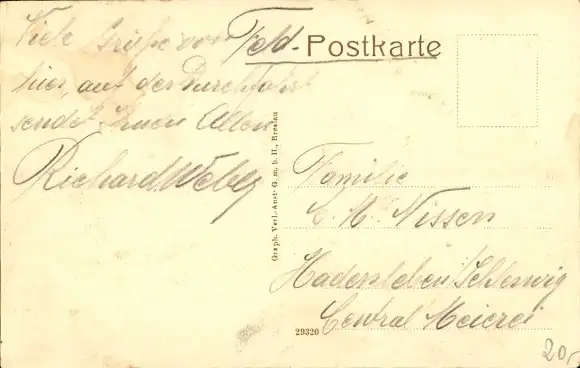 Feld-Postkarte
Viele Grüße von
hier, auf der Durchfahrt
sendet Ihnen Allen
Richard Weber
Graph. Verl.-Anst. G. m. b. H., Breslau
Familie
C. M. Nissen
Hadersleben Schleswig
Central Meierei
29320
20,-